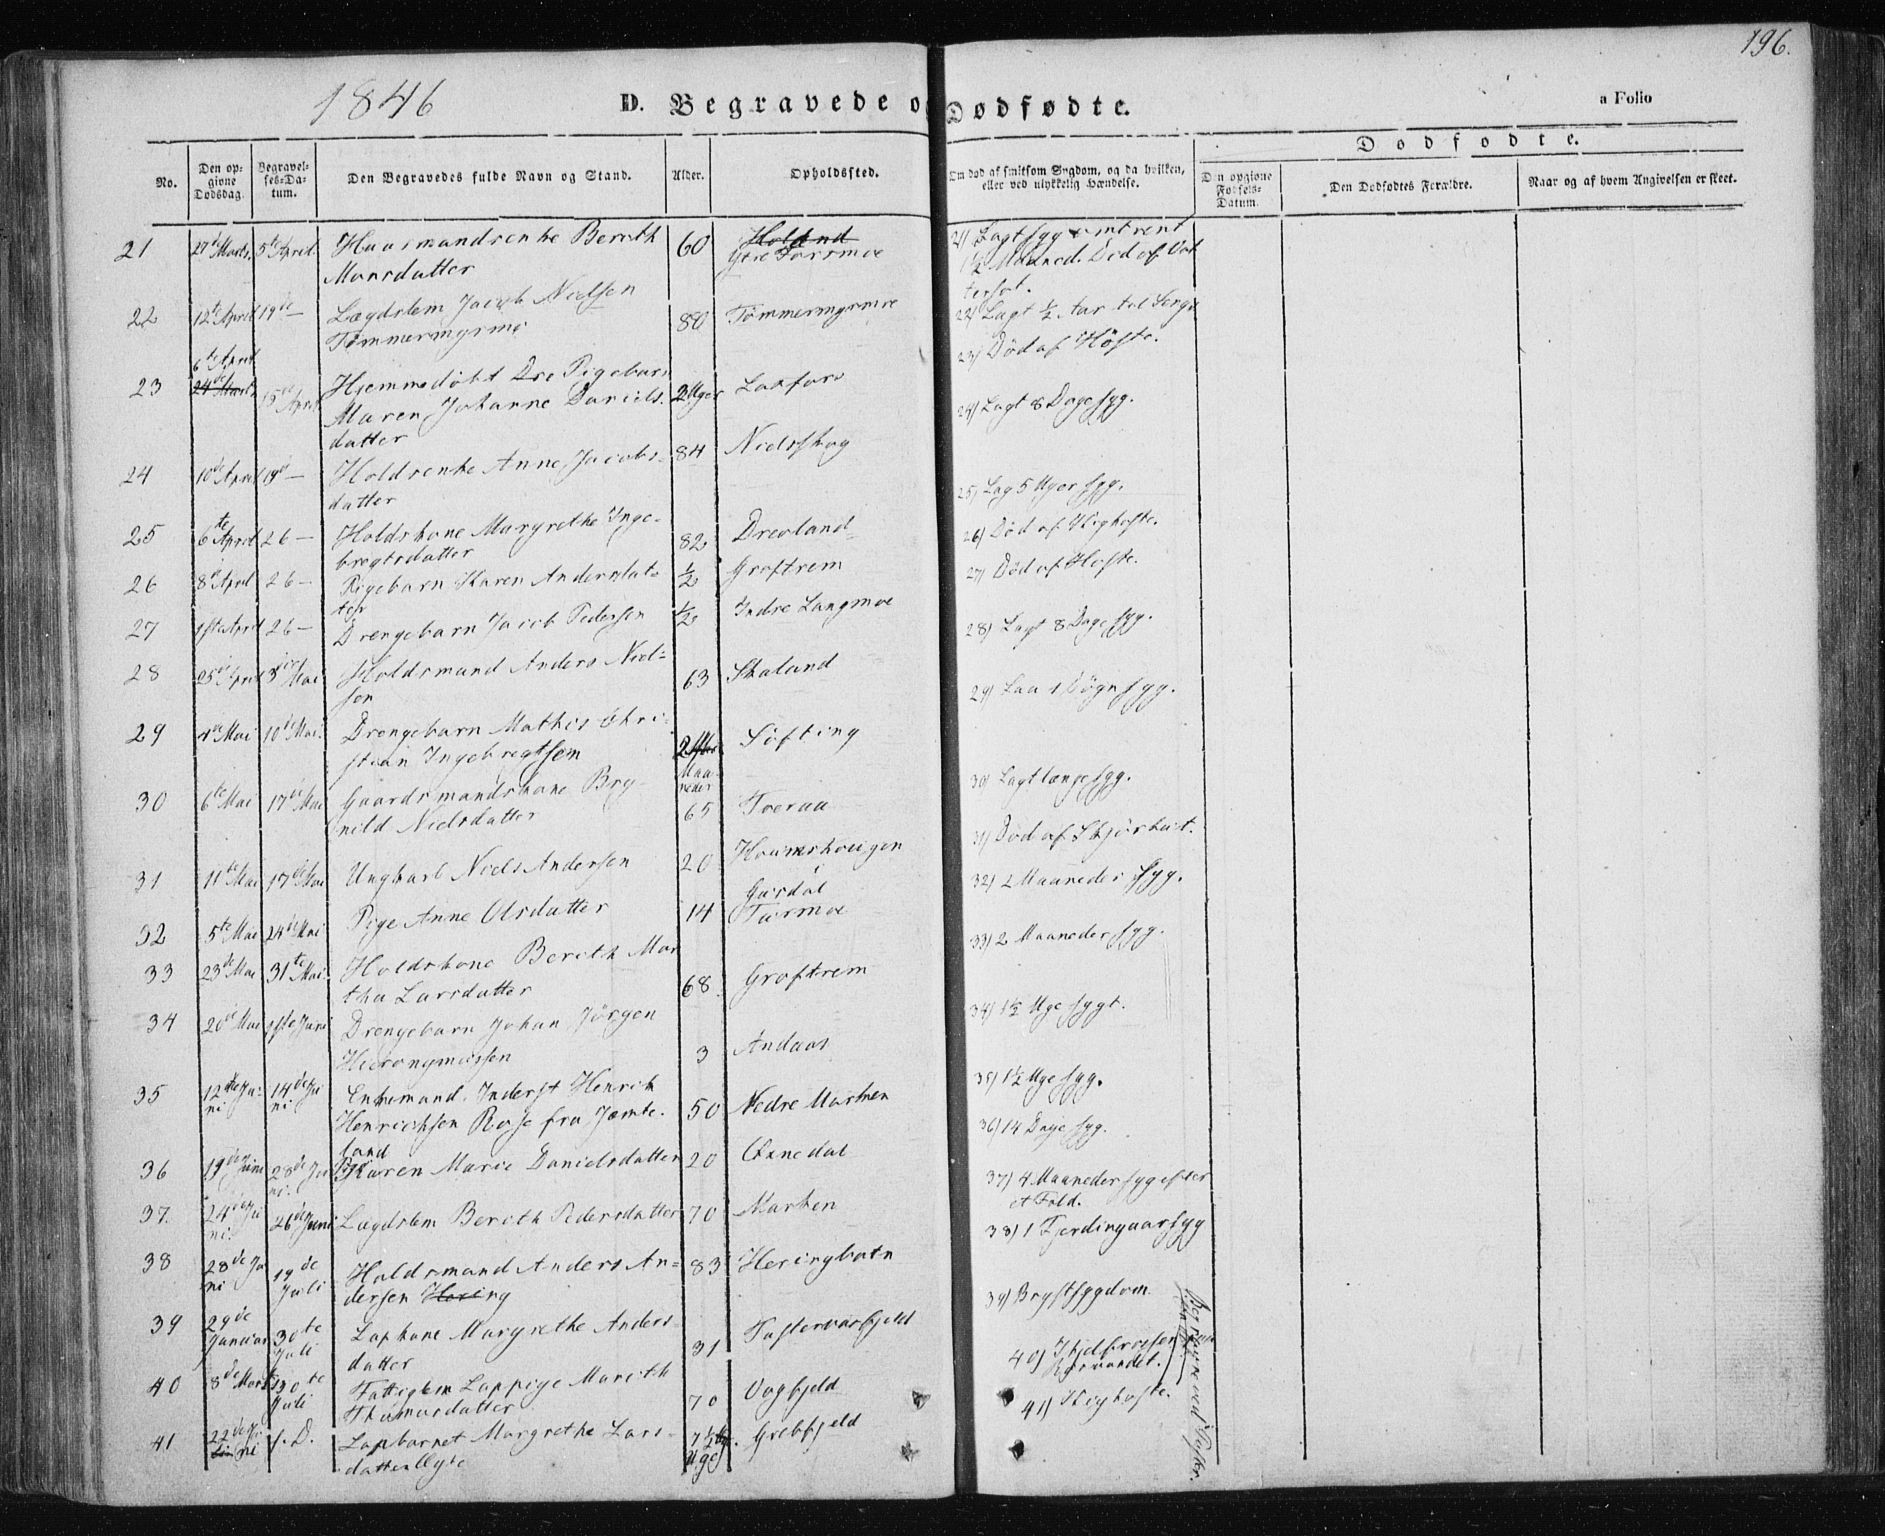 196.
1846
D. Begravede og Dødfødte.
a Folio
Dødfødte.
No.
Den opgivne Dødsdag.
Begravelses-Datum.
Den Begravedes fulde Navn og Stand.
Alder.
Opholdssted.
Om død af smitsom Sygdom, og da hvilken, eller ved ulykkelig Hændelse.
Den opgivne Fødsels-Datum.
Den Dødfødtes Forældre.
Naar og af hvem Angivelsen er skeet.
21 27de Marts. 5te April. Huusmandsenke Berith 60 Holand
Mansdatter Ytre Forsmoe
21) Lagt syg omtrent
1½ Maaned. Død af Vat
tersot.
22 12te April 19de — Lægdslem Jacob Nielsen 80 Tømmermyrmoe
Tømmermyrmo
22) Lagt ½ Aar til Sengs
6te April
23 24de Marts 15de April Hjemmedøbt Pigebarn 2 Uger Laxfors
Maren Johanne Daniels-
datter
23) Død af Høste.
24 10de April 19de — Holdsenke Anne Jacobs- 84 Nielsskog
datter
24) Lagt 8 Dage syg.
25 6te April 26 — Holdskone Margrethe Inge- 82 Drevland
bregtsdatter
25) Lag 5 Uger syg.
26 8de April 26 — Pigebarn Karen Andersdat- ½ Groftrem
ter
26) Død af Kighoste.
27 1ste April 26 — Drengebarn Jacob Pedersen ½ Indre Langmoe
27) Død af Hoste.
28 25de April 3die Mai Holdsmand Anders Niel- 63 Skaland
sen
28) Lagt 8 Dage syg.
29 4de Mai 10de Mai. Drengebarn Mathis Chri- 2 Maa- Søfting
stian Ingebregtsen neder
29) Laa 1 Døgn syg.
30 6te Mai 17de Mai Gaardmandskone Bry- 65 Tveraa
nild Nielsdatter
30) Lagt længe syg.
31 11te Mai 17de Mai Ungkarl Niels Andersen 20
31) Død af
32 5te Mai 24de Mai Pige Anne Olsdatter 14
32) 2 Maaneder syg.
33 23de Mai 31te Mai. Holdskone Berith Mar 68 Groftrem
tha Larsdatter
33) 2 Maaneder syg.
34 20de Mai 1ste Juni Drengebarn Johan Jørgen 3 Andaas
Hieronymussen
34) 1½ Uge sygt.
35 12de Ju- 14de Ju Enkemand. Inderst Henrik 50 Nedre Marken
ni ni. Henrichsen Rose fra Jæmte-
land
35) 1½ Uge syg.
36 19de Juni 28de Ju Karen Marie Danielsdatter 20 Øxnedal
ni.
36) 14 Dage syg.
37. 24de Ju 26de Juni Lægdslem Berith Pedersdatter 70 Marken
ni.
37) 4 Maaneder syg efter
et Fald.
38 28de Ju 19de Holdsmand Anders An- 83 Heringbotn
ni Juli dersen Hering
38) 1 Fjerdingaar syg
39 29de 30te Lapkone Margrethe Anders 31 Fustervasfjeld
Januar Juli datter
39) Brystsygdom.
40 8de Marts 30te Fattiglem Lappige Marith 70 Vogfjeld
Juli Thomasdatter
40) Ihjelfrossen
41 22de Ju s. D. Lapbarnet Margrethe Lars- 7½ Grebfjeld
ni datter Uger
41) Kighoste.